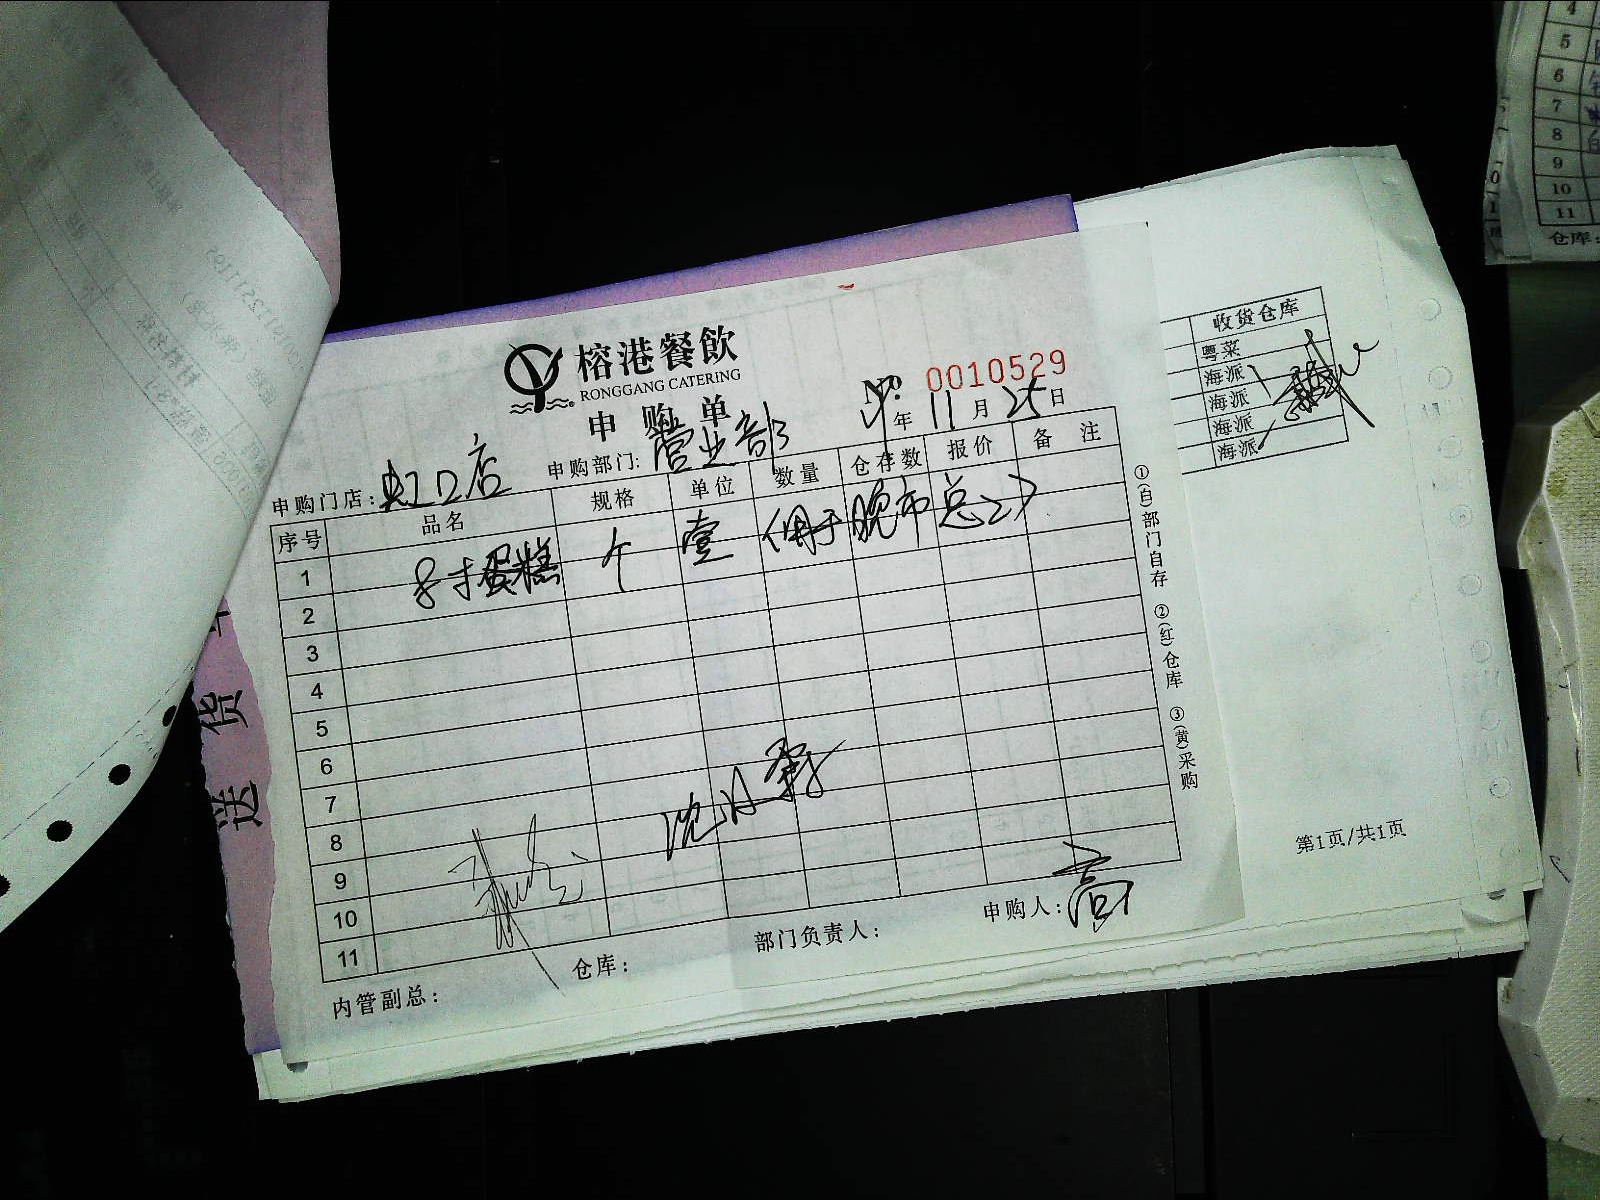 榕港餐飲
RONGGANG CATERING
申购单
No. 0010529
年 11 月 25 日
申购门店: 虹口店 申购部门: 营业部
序号 品名 规格 单位 数量 仓存数 报价 备注
1 8寸蛋糕 个 壹 (用于晚市
2
3
4
5
6
7
8
9
10
11
内管副总: 仓库: 部门负责人: 申购人: 高
①(白)部门自存 ②(红)仓库 ③(黄)采购
收货仓库
粤菜
海派
海派
海派
海派
第1页/共1页
送货
4
5
6
7
8
9
10
11
仓库: